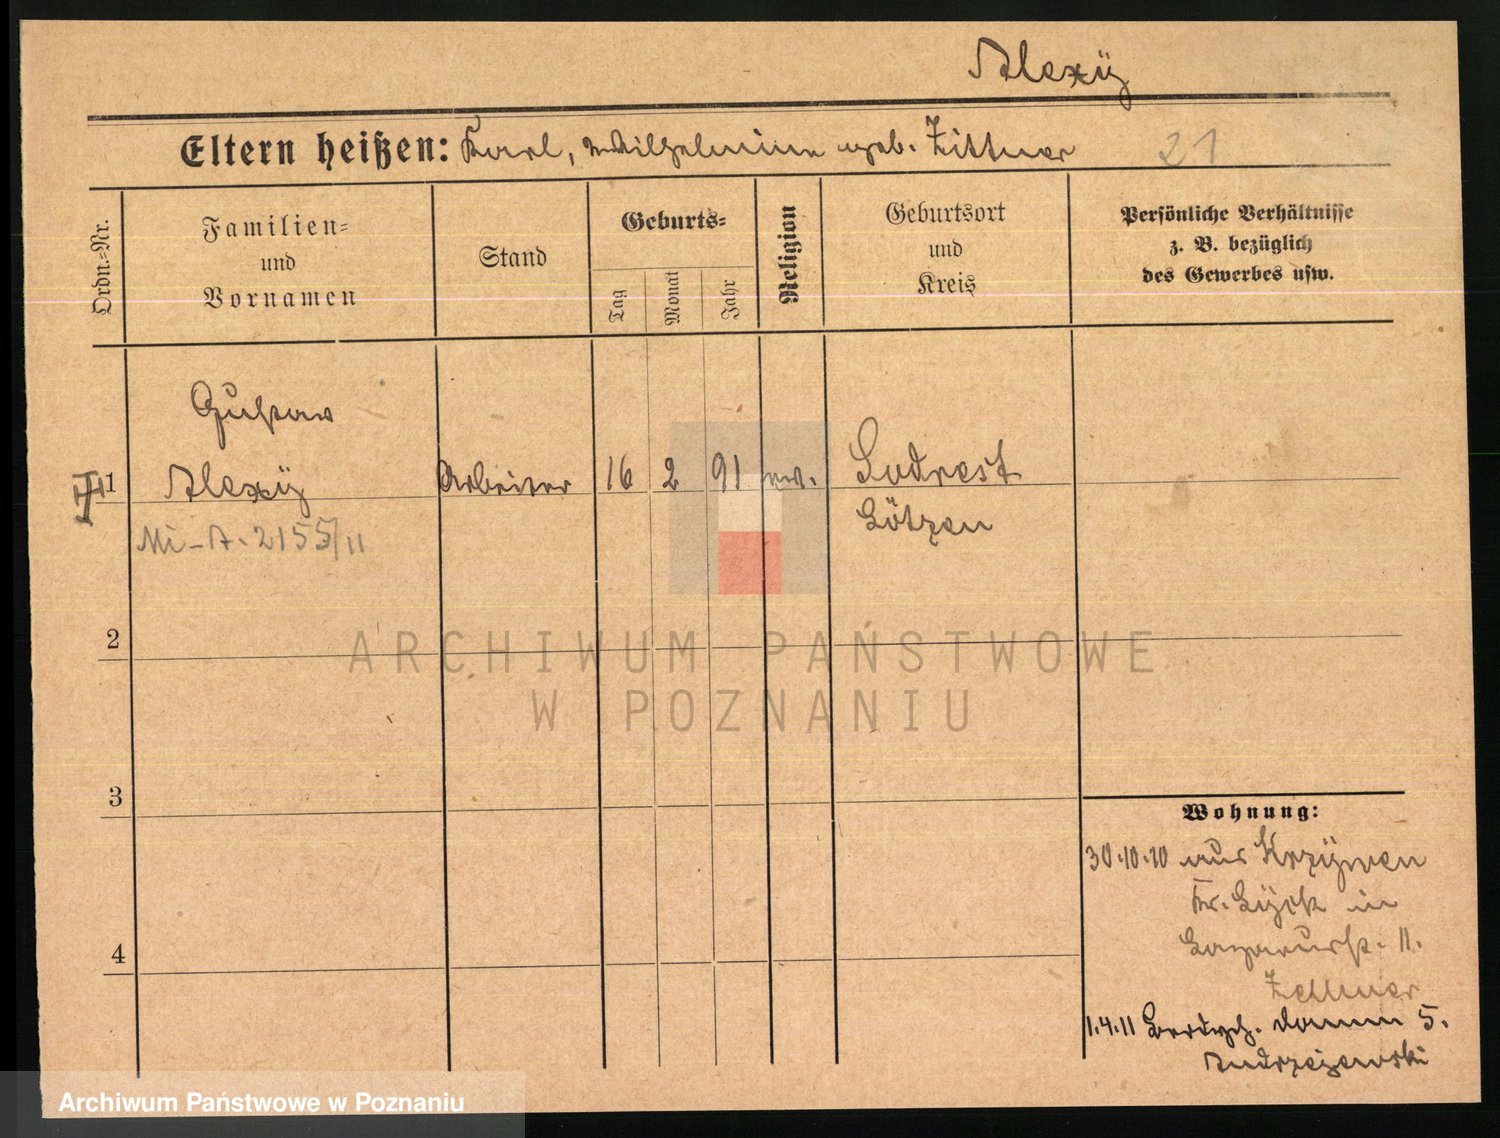 Alexÿ
Eltern heißen: Karl, Wilhelmine geb. Zittner 21
Ordn.-Nr.
Familien-
und
Vornamen
Stand
Geburts-
Tag
Monat
Jahr
Religion
Geburtsort
und
Kreis
Persönliche Verhältnisse
z. B. bezüglich
des Gewerbes usw.
Gustav
1 Alexÿ Arbeiter 16 2 91 ev.
Lötzen
Mi-A. 2155/11
2
ARCHIWUM PAŃSTWOWE
W POZNANIU
3
Wohnung:
30.10.10 aus Krzÿwen
Kr. Lÿck in
Lazarusstr. 11.
Zellmer
1.4.11 damm 5.
Andrzejewski
4
Archiwum Państwowe w Poznaniu